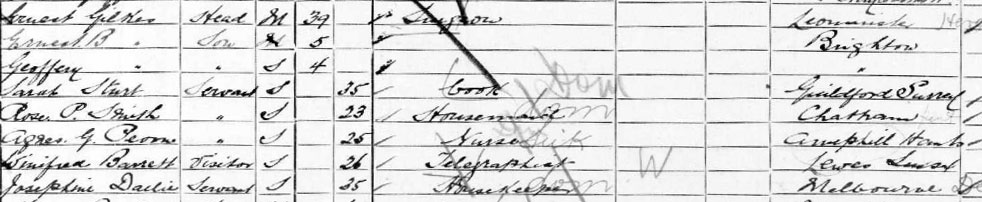 Ernest Gilkes Head M 39 Surgeon Leominster
Ernest B " Son 5 Brighton
Geoffery " " S 4 "
Sarah Sturt Servant S 35 Cook Guildford Surrey
Rose P. Smith " S 23 Housemaid Chatham
Agnes G. " S 25 Nurse Ampthill
Winifred Barrett Visitor S 26 Telegraphist W Lewes Sussex
Josephine Servant S 35 Housekeeper Melbourne